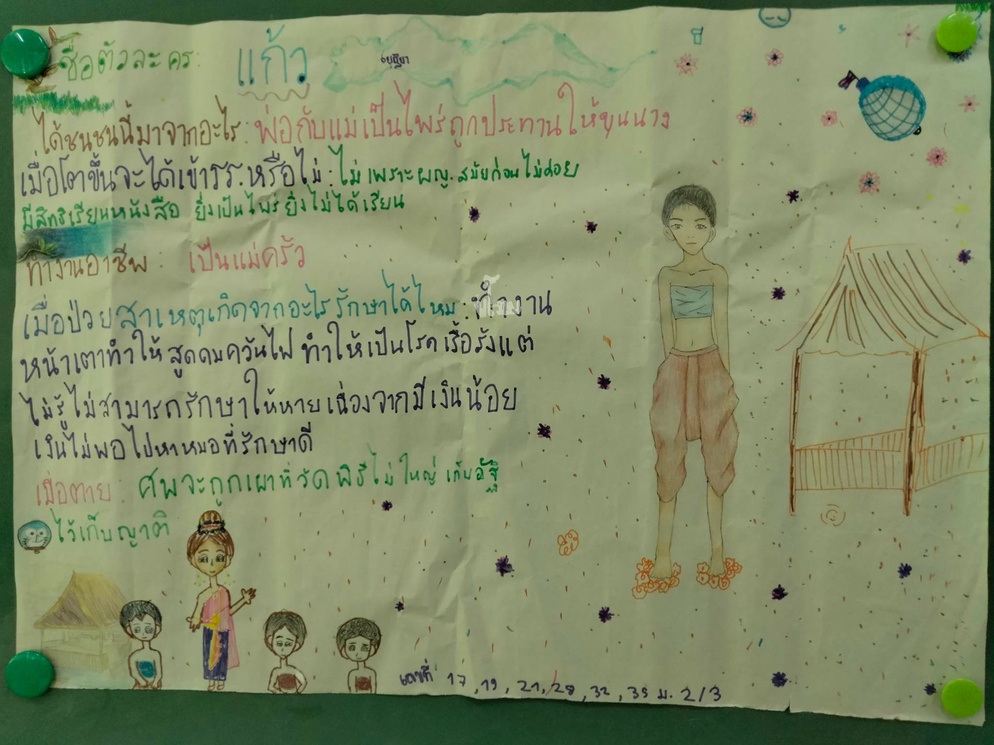 ชื่อตัวละคร: แก้ว อยุธยา
ได้ชนชนนี้มาจากอะไร: พ่อกับแม่เป็นไพร่ถูกประทานให้ขุนนาง
เมื่อโตขึ้นจะได้เข้ารร.หรือไม่: ไม่เพราะผญ.สมัยก่อนไม่ค่อย
มีสิทธิเรียนหนังสือ ยิ่งเป็นไพร่ยิ่งไม่ได้เรียน
ทำงานอาชีพ: เป็นแม่ครัว
เมื่อป่วยสาเหตุเกิดจากอะไรรักษาได้ไหม: ทำงาน
หน้าเตาทำให้สูดดมควันไฟ ทำให้เป็นโรคเรื้อรังแต่
ไม่รู้ไม่สามารถรักษาให้หายเนื่องจากมีเงินน้อย
เงินไม่พอไปหาหมอที่รักษาดี
เมื่อตาย: ศพจะถูกเผาที่วัดพิธีไม่ใหญ่ เก็บอัฐิ
ไว้เก็บญาติ
เลขที่ 17, 19, 21, 28, 32, 35 ม.2/3